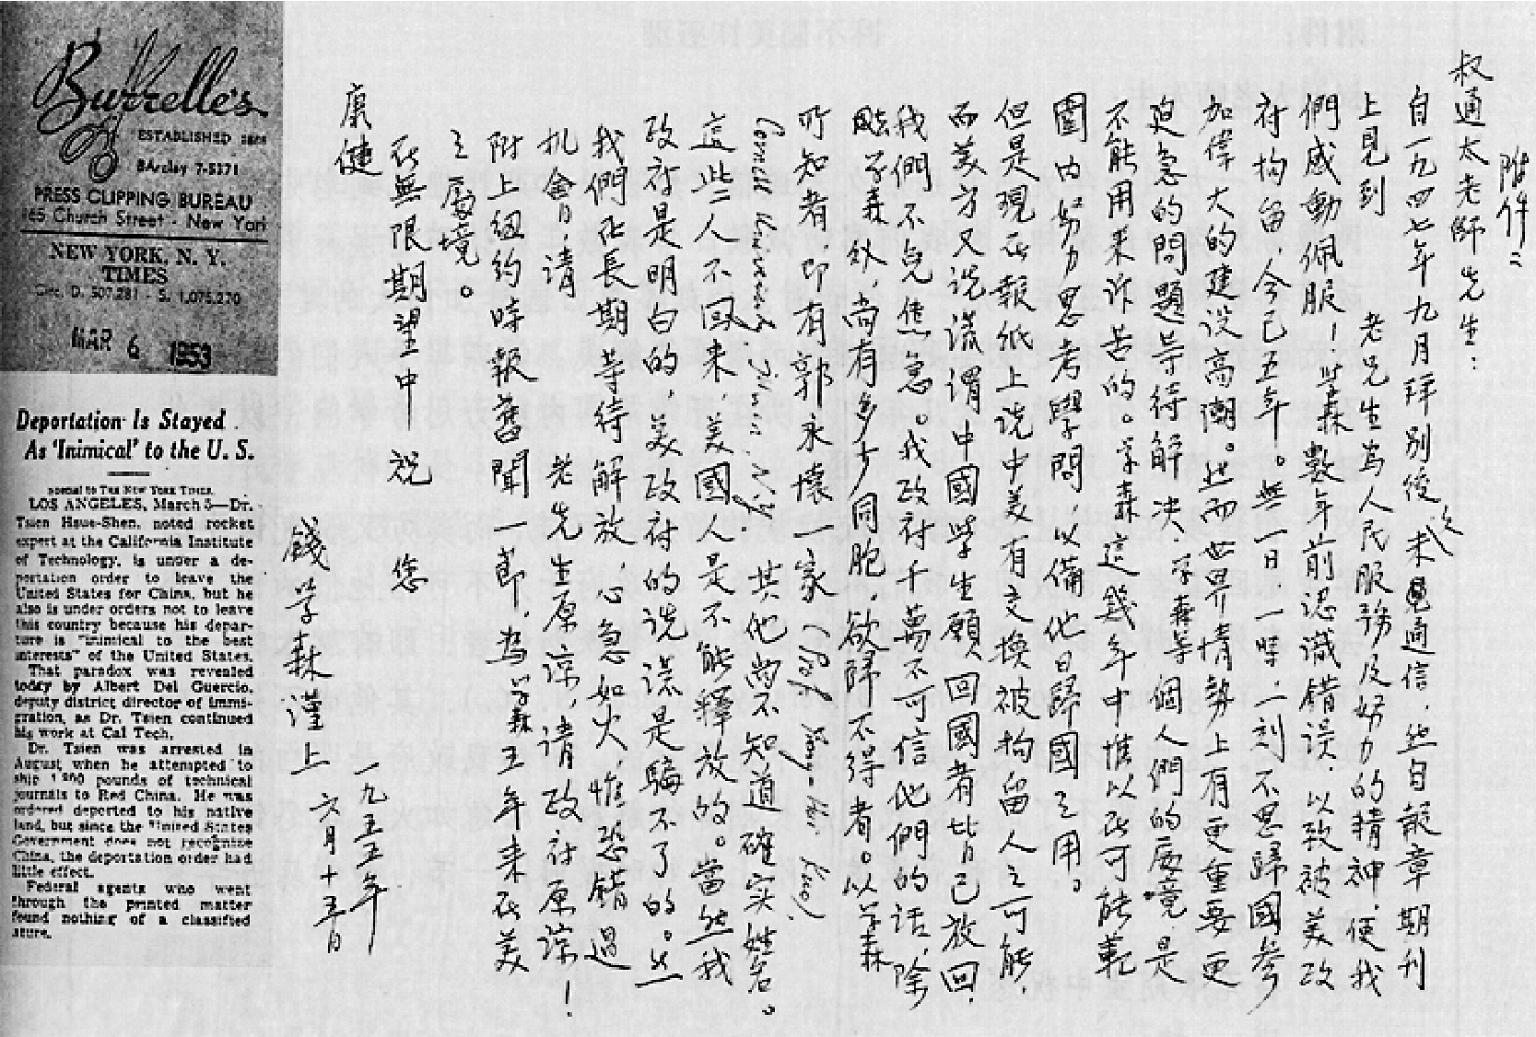 附件二
叔通太老師先生：
自一九四七年九月拜別後久未通信，然自報章期刊
上見到 老先生為人民服務及努力的精神，使我
們感動佩服！学森數年前認識錯误，以致被美政
府拘留，今已五年。無一日、一時、一刻不思歸國參
加偉大的建设高潮。然而世界情勢上有更重要更
迫急的問題等待解决，学森等個人們的處境是
不能用来诉苦的。学森這幾年中惟以在可能範
圍内努力思考學問，以備他日歸國之用。
但是現在報紙上说中美有交換被拘留人之可能，
而美方又说谎谓中國学生願回國者皆已放回，
我們不免焦急。我政府千萬不可信他們的话，除
学森外，尚有多少同胞，欲歸不得者。以学森
所知者，即有郭永懷一家（Prof. Yong-Huai Kuo,
Cornell University, N.Y.），其他尚不知道確实姓名。
這些人不回来，美國人是不能釋放的。當然我
政府是明白的，美政府的说谎是騙不了的。然
我們在長期等待解放，心急如火，惟恐錯過
机會，請 老先生原谅，请政府原谅！
附上纽約時報舊聞一節，為学森五年来在美
之處境。
在無限期望中祝 您
康健
錢学森謹上
一九五五年
六月十五日
Burrelle's
ESTABLISHED 1888
BArclay 7-5371
PRESS CLIPPING BUREAU
165 Church Street - New York
NEW YORK, N. Y.
TIMES
Circ. D. 507,281 - S. 1,075,270
MAR 6 1953
Deportation Is Stayed
As 'Inimical' to the U. S.
Special to THE NEW YORK TIMES.
LOS ANGELES, March 5—Dr.
Tsien Hsue-Shen, noted rocket
expert at the California Institute
of Technology, is under a de-
portation order to leave the
United States for China, but he
also is under orders not to leave
this country because his depar-
ture is "inimical to the best
interests" of the United States.
That paradox was revealed
today by Albert Del Guercio,
deputy district director of immi-
gration, as Dr. Tsien continued
his work at Cal Tech.
Dr. Tsien was arrested in
August when he attempted to
ship 1,800 pounds of technical
journals to Red China. He was
ordered deported to his native
land, but since the United States
Government does not recognize
China, the deportation order had
little effect.
Federal agents who went
through the printed matter
found nothing of a classified
ature.